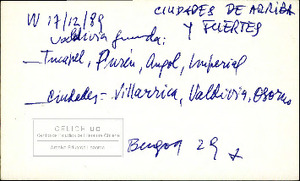 W 17/12/89 CIUDADES DE ARRIBA
Valdivia funda: Y FUERTES
— Tucapel, Purén, Angol, Imperial
— Ciudades - Villarrica, Valdivia, Osorno
CELICH UC
Bengoa 29